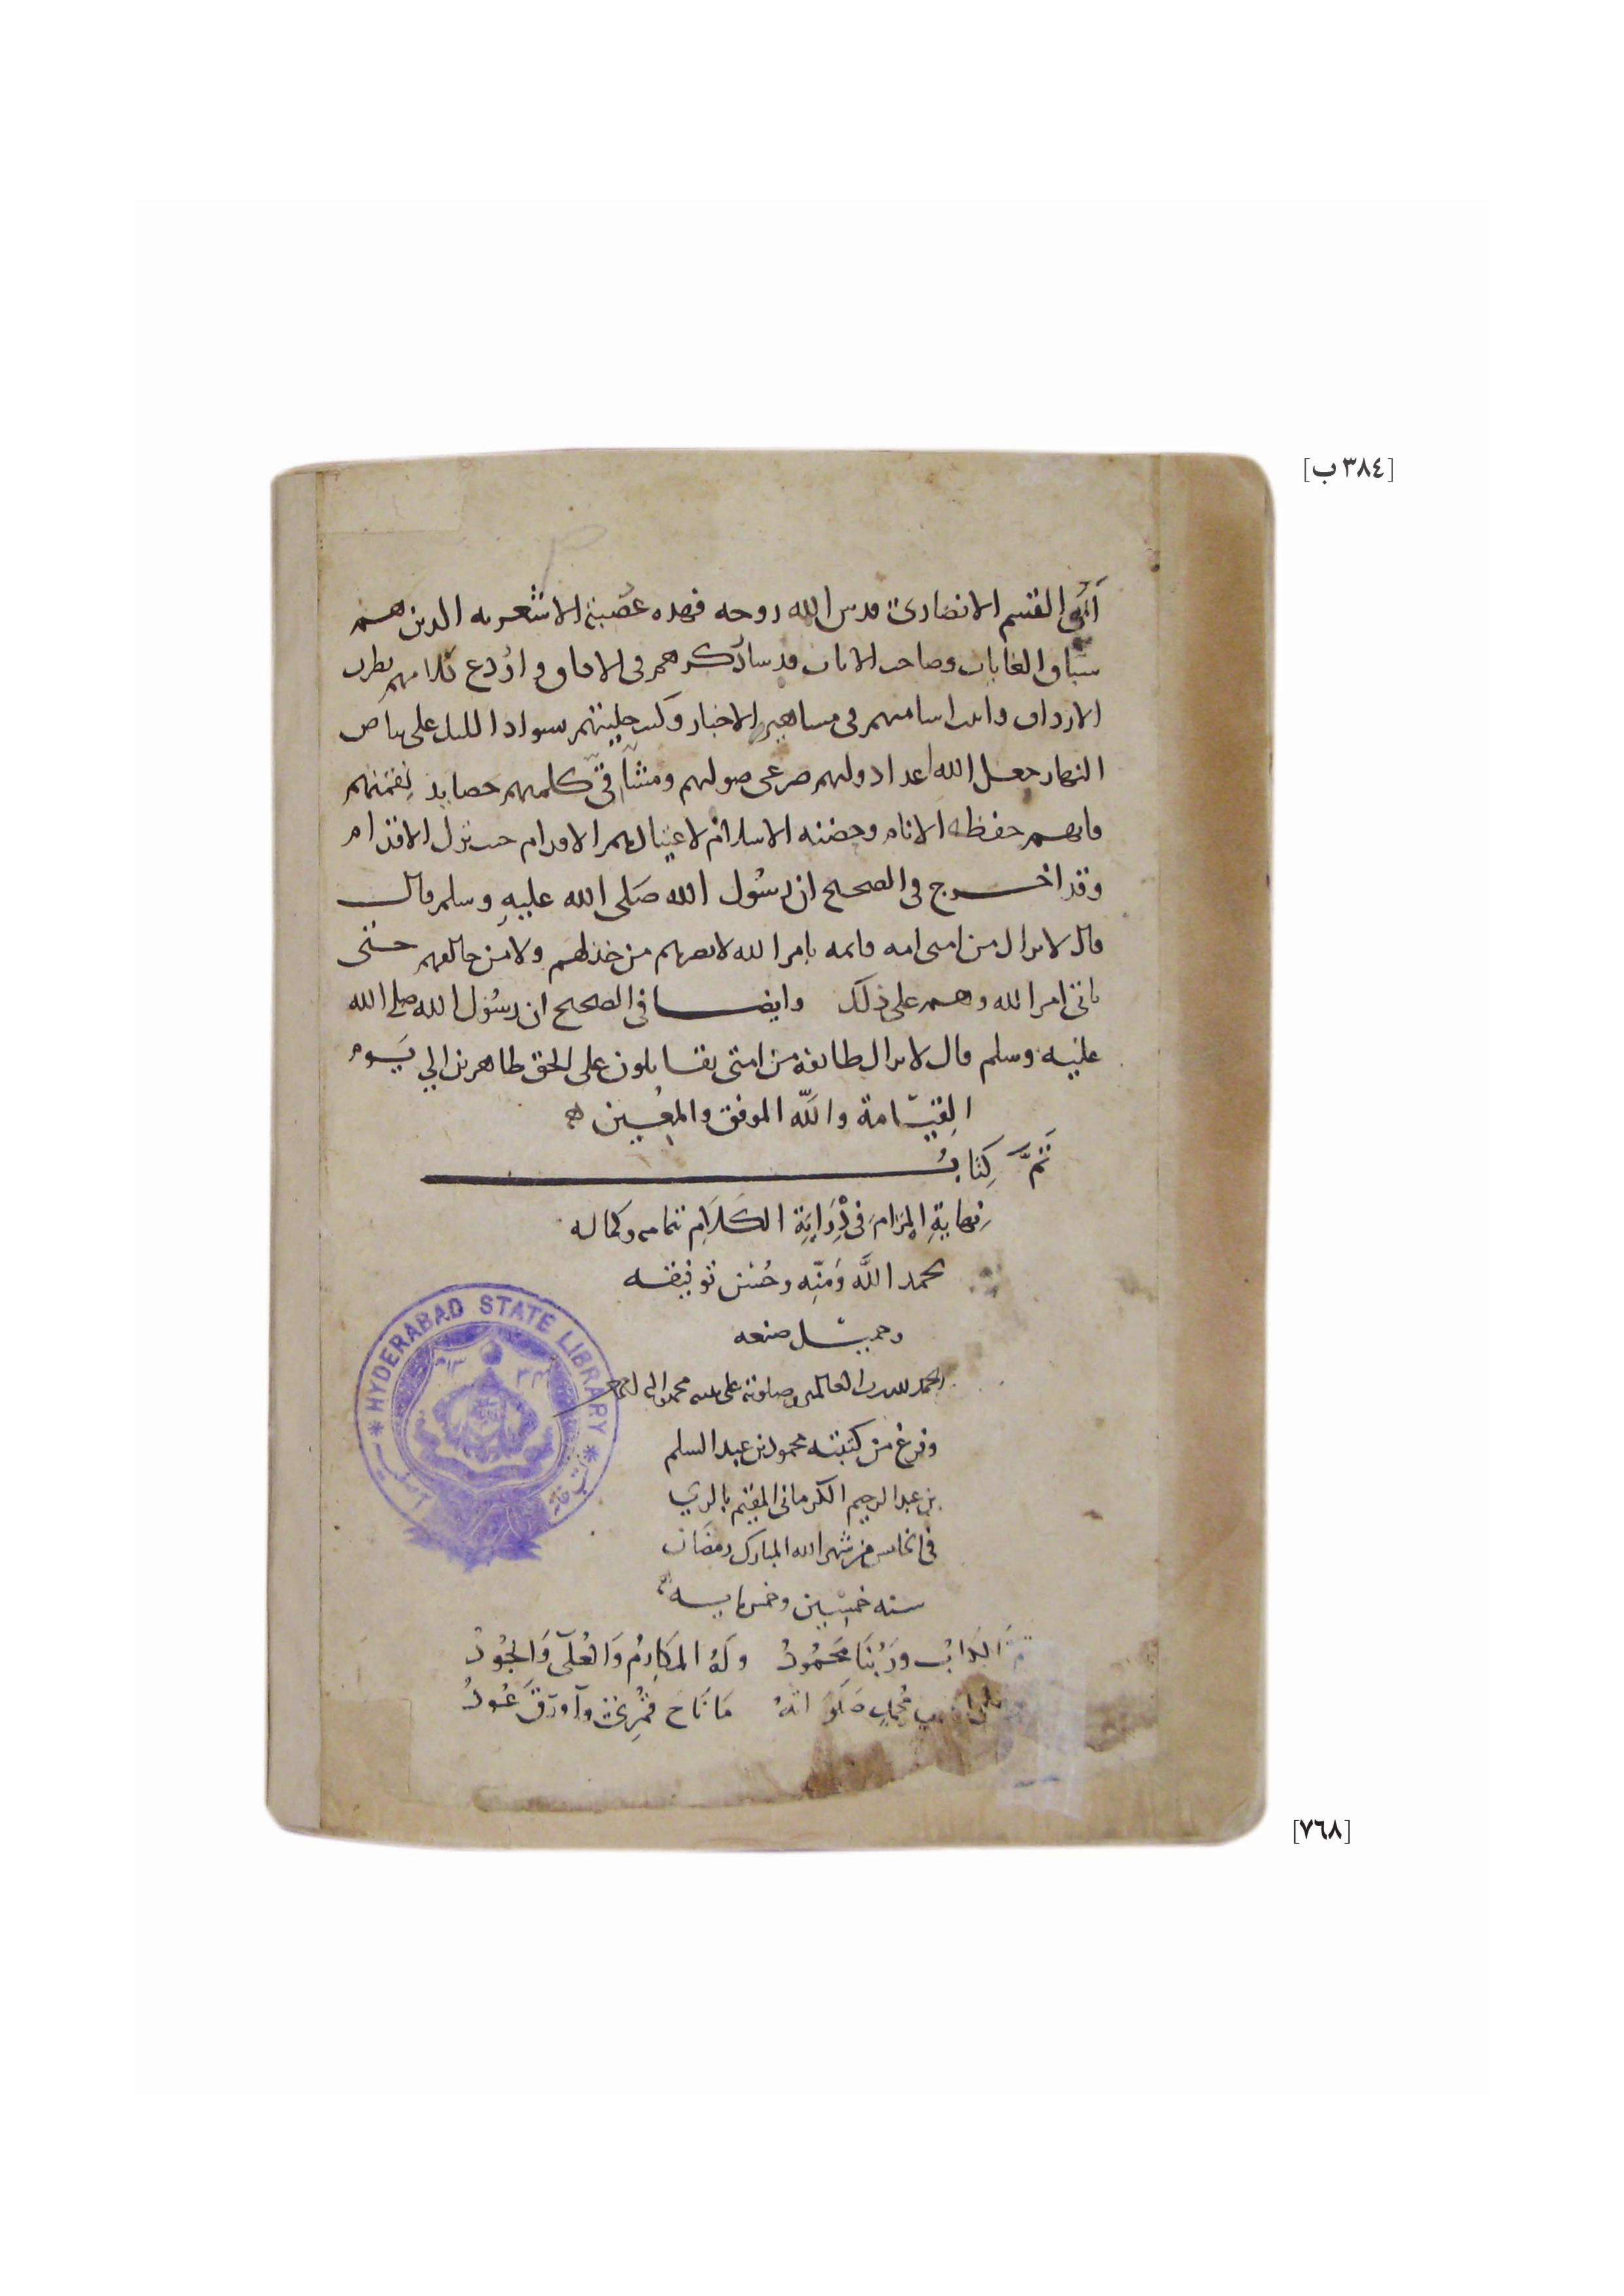 [٣٨٤ ب]
أبي القسم الانصاري قدس الله روحه فهذه عصبة الاشعريه الذين هم
سباق الغايات وصاحب الايات قد سار ذكرهم في الافاق و كلامهم بطرف
الارداف واثبت اساميهم في مشاهير الاخبار وكتب حليتهم سواد الليل على بياض
النهار جعل الله اعدا دولتهم صرعى صولتهم ومشاقي كلمتهم حصايد نقمتهم
فانهم حفظة الانام وحضنة الاسلام الاقدام حيث تزل الاقدام
وقد اخرج في الصحيح ان رسول الله صلى الله عليه وسلم قال
قال لا يزال من امتي امة قائمه بامر الله لا يضرهم من خذلهم ولا من خالفهم حتى
ياتي امر الله وهم على ذلك وايضا في الصحيح ان رسول الله صلى الله
عليه وسلم قال لا يزال طائفة من امتي يقاتلون على الحق ظاهرين الي يوم
القيامة والله الموفق والمعين
تَمَّ كِتَابُ
نهايةِ المَرَام في دِرَايَةِ الكَلَامِ بتمامه وكماله
بحمد اللَّه ومَنِّه وحُسن توفيقه
وجميل صنعه
الحمد لله رب العالمين وصلوته على نبيه محمد واله اجمعين
وفرغ من كتبته محمود بن عبد السلم
بن عبد الرحيم الكرماني المقيم بالري
في الخامس من شهر الله المبارك رمضان
سنه خمسين وخمس مايه
تَمَّ الكتابُ ورَبُّنَا مَحْمُودُ ولَهُ المَكَارِمُ وَالعُلَى وَالجُودُ
النبي مُحمدٍ صَلَوَاتهُ مَا نَاحَ قُمْرِيٌّ وأورَقَ عُودُ
HYDERABAD STATE LIBRARY
[٧٦٨]